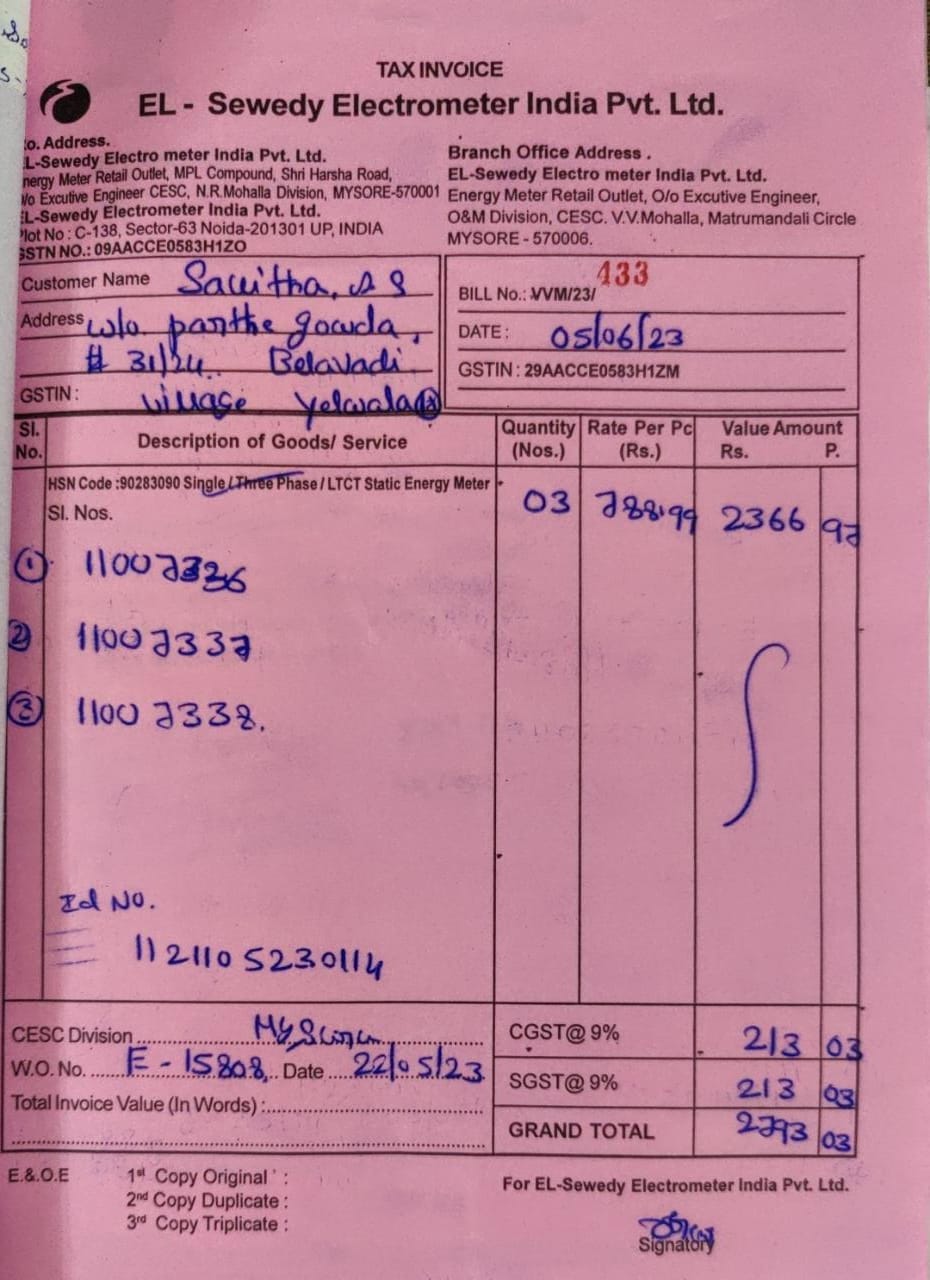 TAX INVOICE
EL - Sewedy Electrometer India Pvt. Ltd.
o. Address.
L-Sewedy Electro meter India Pvt. Ltd.
nergy Meter Retail Outlet, MPL Compound, Shri Harsha Road,
/o Excutive Engineer CESC, N.R.Mohalla Division, MYSORE-570001
EL-Sewedy Electrometer India Pvt. Ltd.
Plot No : C-138, Sector-63 Noida-201301 UP, INDIA
GSTN NO.: 09AACCE0583H1ZO
Branch Office Address .
EL-Sewedy Electro meter India Pvt. Ltd.
Energy Meter Retail Outlet, O/o Excutive Engineer,
O&M Division, CESC. V.V.Mohalla, Matrumandali Circle
MYSORE - 570006.
Customer Name Sawitha, D S
Address w/o panthe gowda,
# 31/24. Belavadi
GSTIN : village
BILL No.: VVM/23/ 433
DATE : 05/06/23
GSTIN : 29AACCE0583H1ZM
Sl. No. Description of Goods/ Service Quantity (Nos.) Rate Per Pc (Rs.) Value Amount Rs. P.
HSN Code :90283090 Single / Three Phase / LTCT Static Energy Meter
Sl. Nos. 03 788.99 2366 97
1 11007336
2 11007337
3 11007338.
Id No.
1121105230114
CESC Division
W.O. No. E - 15808, Date 22/05/23
Total Invoice Value (In Words) :
CGST@ 9% 213 03
SGST@ 9% 213 03
GRAND TOTAL 2793 03
E.&.O.E
1st Copy Original :
2nd Copy Duplicate :
3rd Copy Triplicate :
For EL-Sewedy Electrometer India Pvt. Ltd.
Signatory